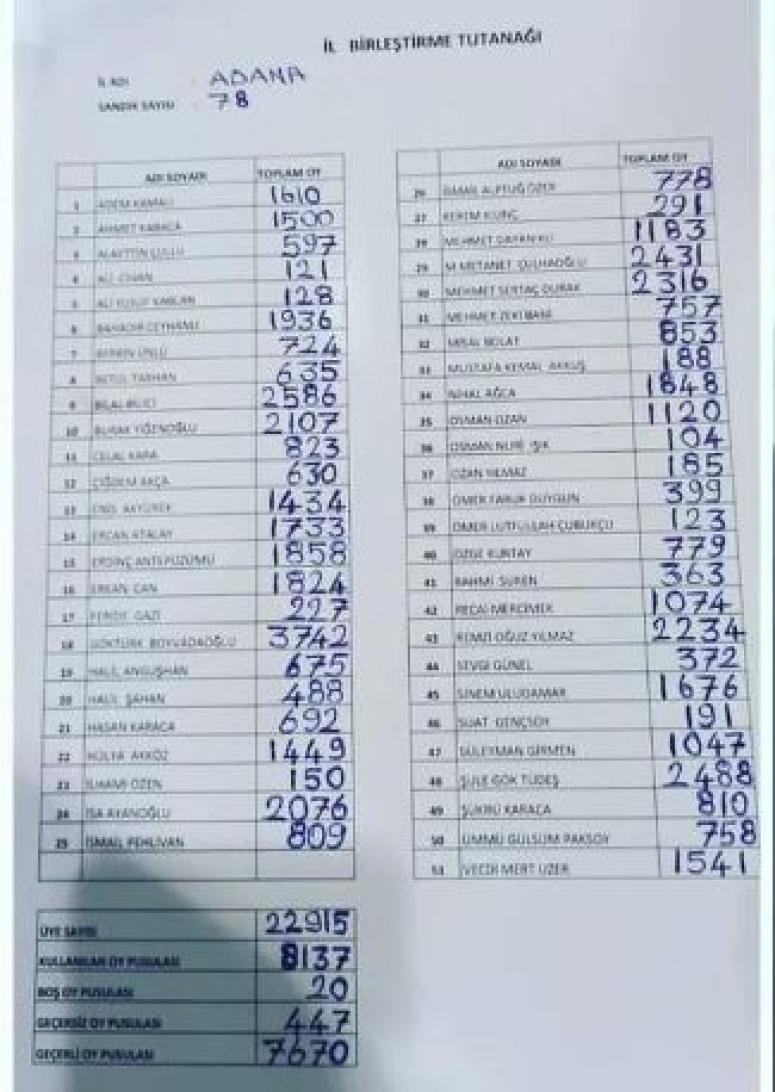 İL BİRLEŞTİRME TUTANAĞI
İL ADI : ADANA
SANDIK SAYISI : 78
ADI SOYADI TOPLAM OY
1 ADEM KAMALI 1610
2 AHMET KARACA 1500
3 ALAETTİN ÇULLU 597
4 ALİ CİHAN 121
5 ALİ YUSUF KAPLAN 128
6 BAHADIR CEYHANLI 1936
7 BERKİN ÜNLÜ 724
8 BETÜL TARHAN 635
9 BİLAL BİLİCİ 2586
10 BURAK YİĞENOĞLU 2107
11 CELAL KARA 823
12 ÇİĞDEM AKÇA 630
13 ENİS AKYÜREK 1434
14 ERCAN ATALAY 1733
15 ERDİNÇ ANTEPÜZÜMÜ 1858
16 ERKAN CAN 1824
17 FERİDE GAZİ 227
18 GÖKTÜRK BOYVADAOĞLU 3742
19 HALİL ANGUŞHAN 675
20 HALİL ŞAHAN 488
21 HASAN KARACA 692
22 HÜLYA AKKÖZ 1449
23 İLHAMİ ÖZEN 150
24 İSA AYANOĞLU 2076
25 İSMAİL PEHLİVAN 809
ÜYE SAYISI 22915
KULLANILAN OY PUSULASI 8137
BOŞ OY PUSULASI 20
GEÇERSİZ OY PUSULASI 447
GEÇERLİ OY PUSULASI 7670
ADI SOYADI TOPLAM OY
26 İSMAİL ALPTUĞ ÖZER 778
27 KEREM KILINÇ 291
28 MEHMET 1183
29 M METANET ÇULHAOĞLU 2431
30 MEHMET SERTAÇ DURAK 2316
31 MEHMET ZEKİ 757
32 MİSAL BOLAT 853
33 MUSTAFA KEMAL AKKUŞ 188
34 NİHAL AĞCA 1848
35 OSMAN OZAN 1120
36 OSMAN NURİ IŞIK 104
37 OZAN YILMAZ 185
38 ÖMER FARUK DUYGUN 399
39 ÖMER LÜTFULLAH ÇUBUKÇU 123
40 ÖZGE KURTAY 779
41 RAHMİ SUREN 363
42 RECAİ MERCİMEK 1074
43 REMZİ OĞUZ YILMAZ 2234
44 SEVGİ GÜNEL 372
45 SİNEM ULUDAMAR 1676
46 SUAT GENÇSOY 191
47 SÜLEYMAN GİRMEN 1047
48 ŞULE GÖK TÜDEŞ 2488
49 ŞÜKRÜ KARACA 810
50 ÜMMÜ GÜLSÜM PAKSOY 758
51 VECDİ MERT UZER 1541